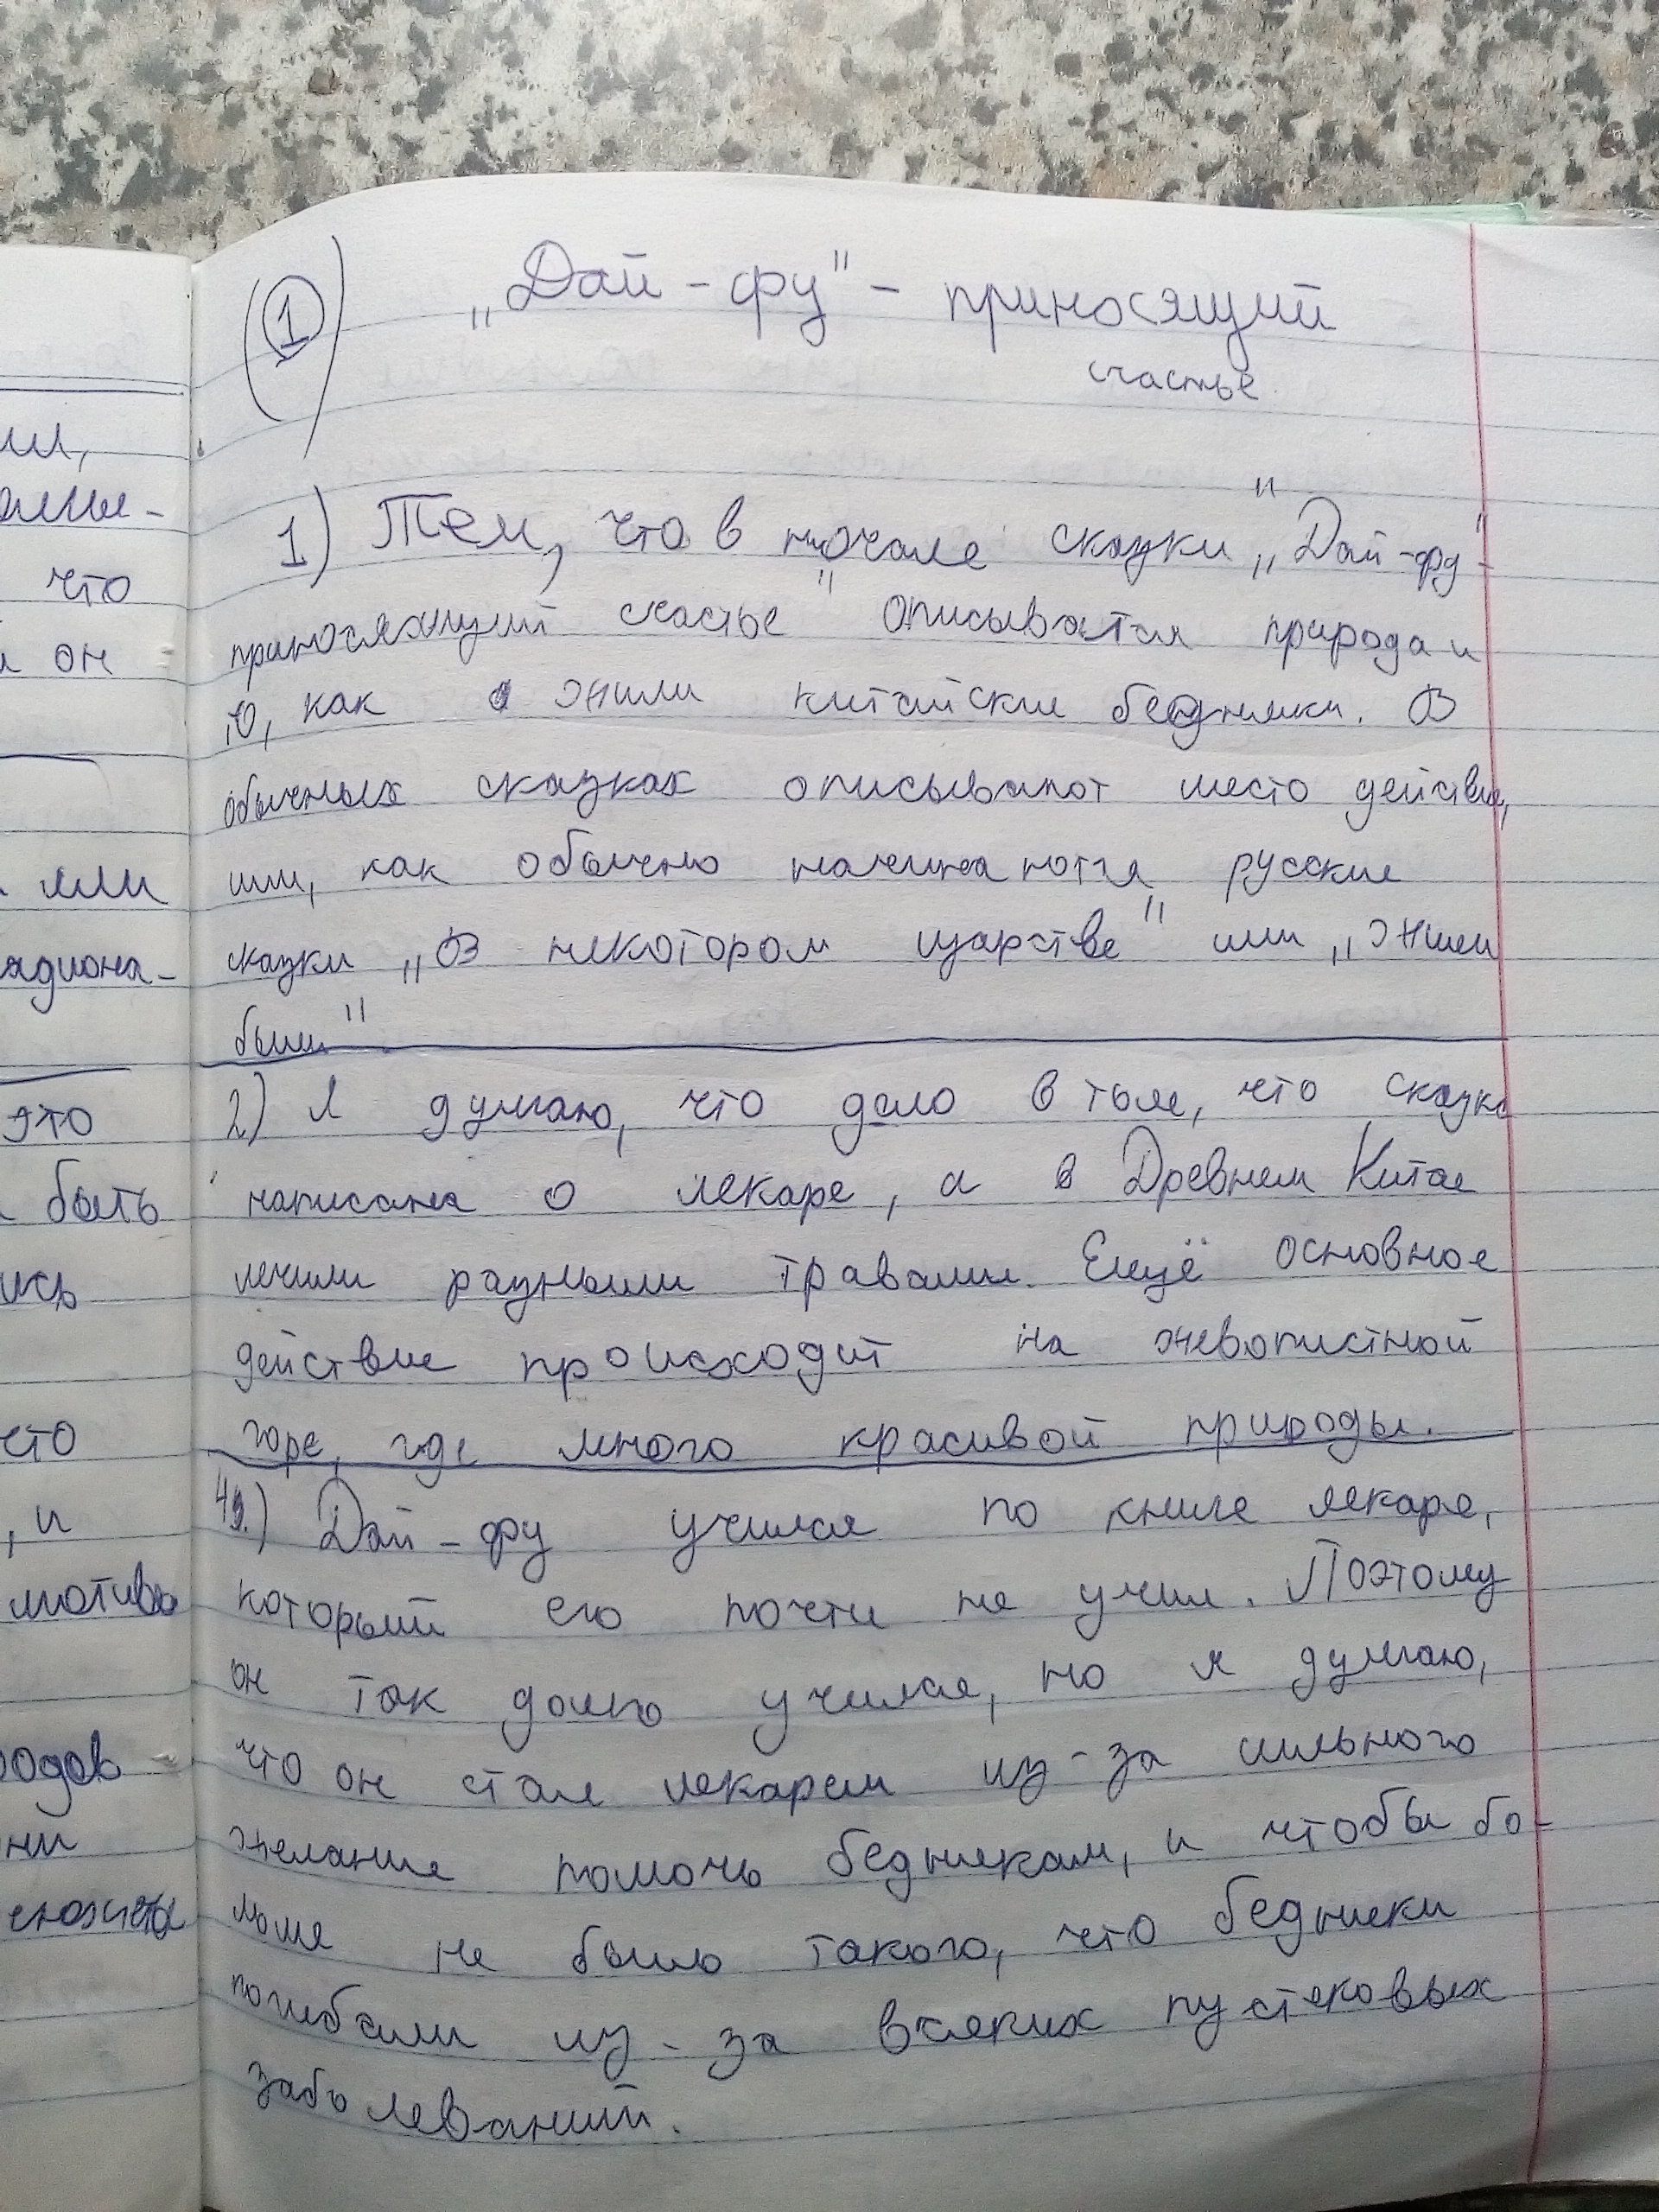 ии,
что
он
или
это
быть
ись
что
, и
мотивы
родов
ни
сюжеты
1
„Дай-фу" - приносящий
счастье
1) Тем, что в начале сказки „Дай-фу"-
приносящий счастье" описывается природа и
то, как жили китайские бедняки. В
обычных сказках описывают место действия,
или, как обычно начинаются русские
сказки „В некотором царстве" или „Жили
были"
2) Я думаю, что дело в том, что сказка
написана о лекаре, а в Древнем Китае
лечили разными травами. Ещё основное
действие происходит на жевопистной
горе, где много красивой природы.
4.) Дай-фу учился по книге лекаря,
который его почти не учил. Поэтому
он так долго учился, но я думаю,
что он стал лекарем из-за сильного
желания помочь беднякам, и чтобы бо-
льше не было такого, что бедняки
погибали из-за всяких пустяковых
заболеваний.